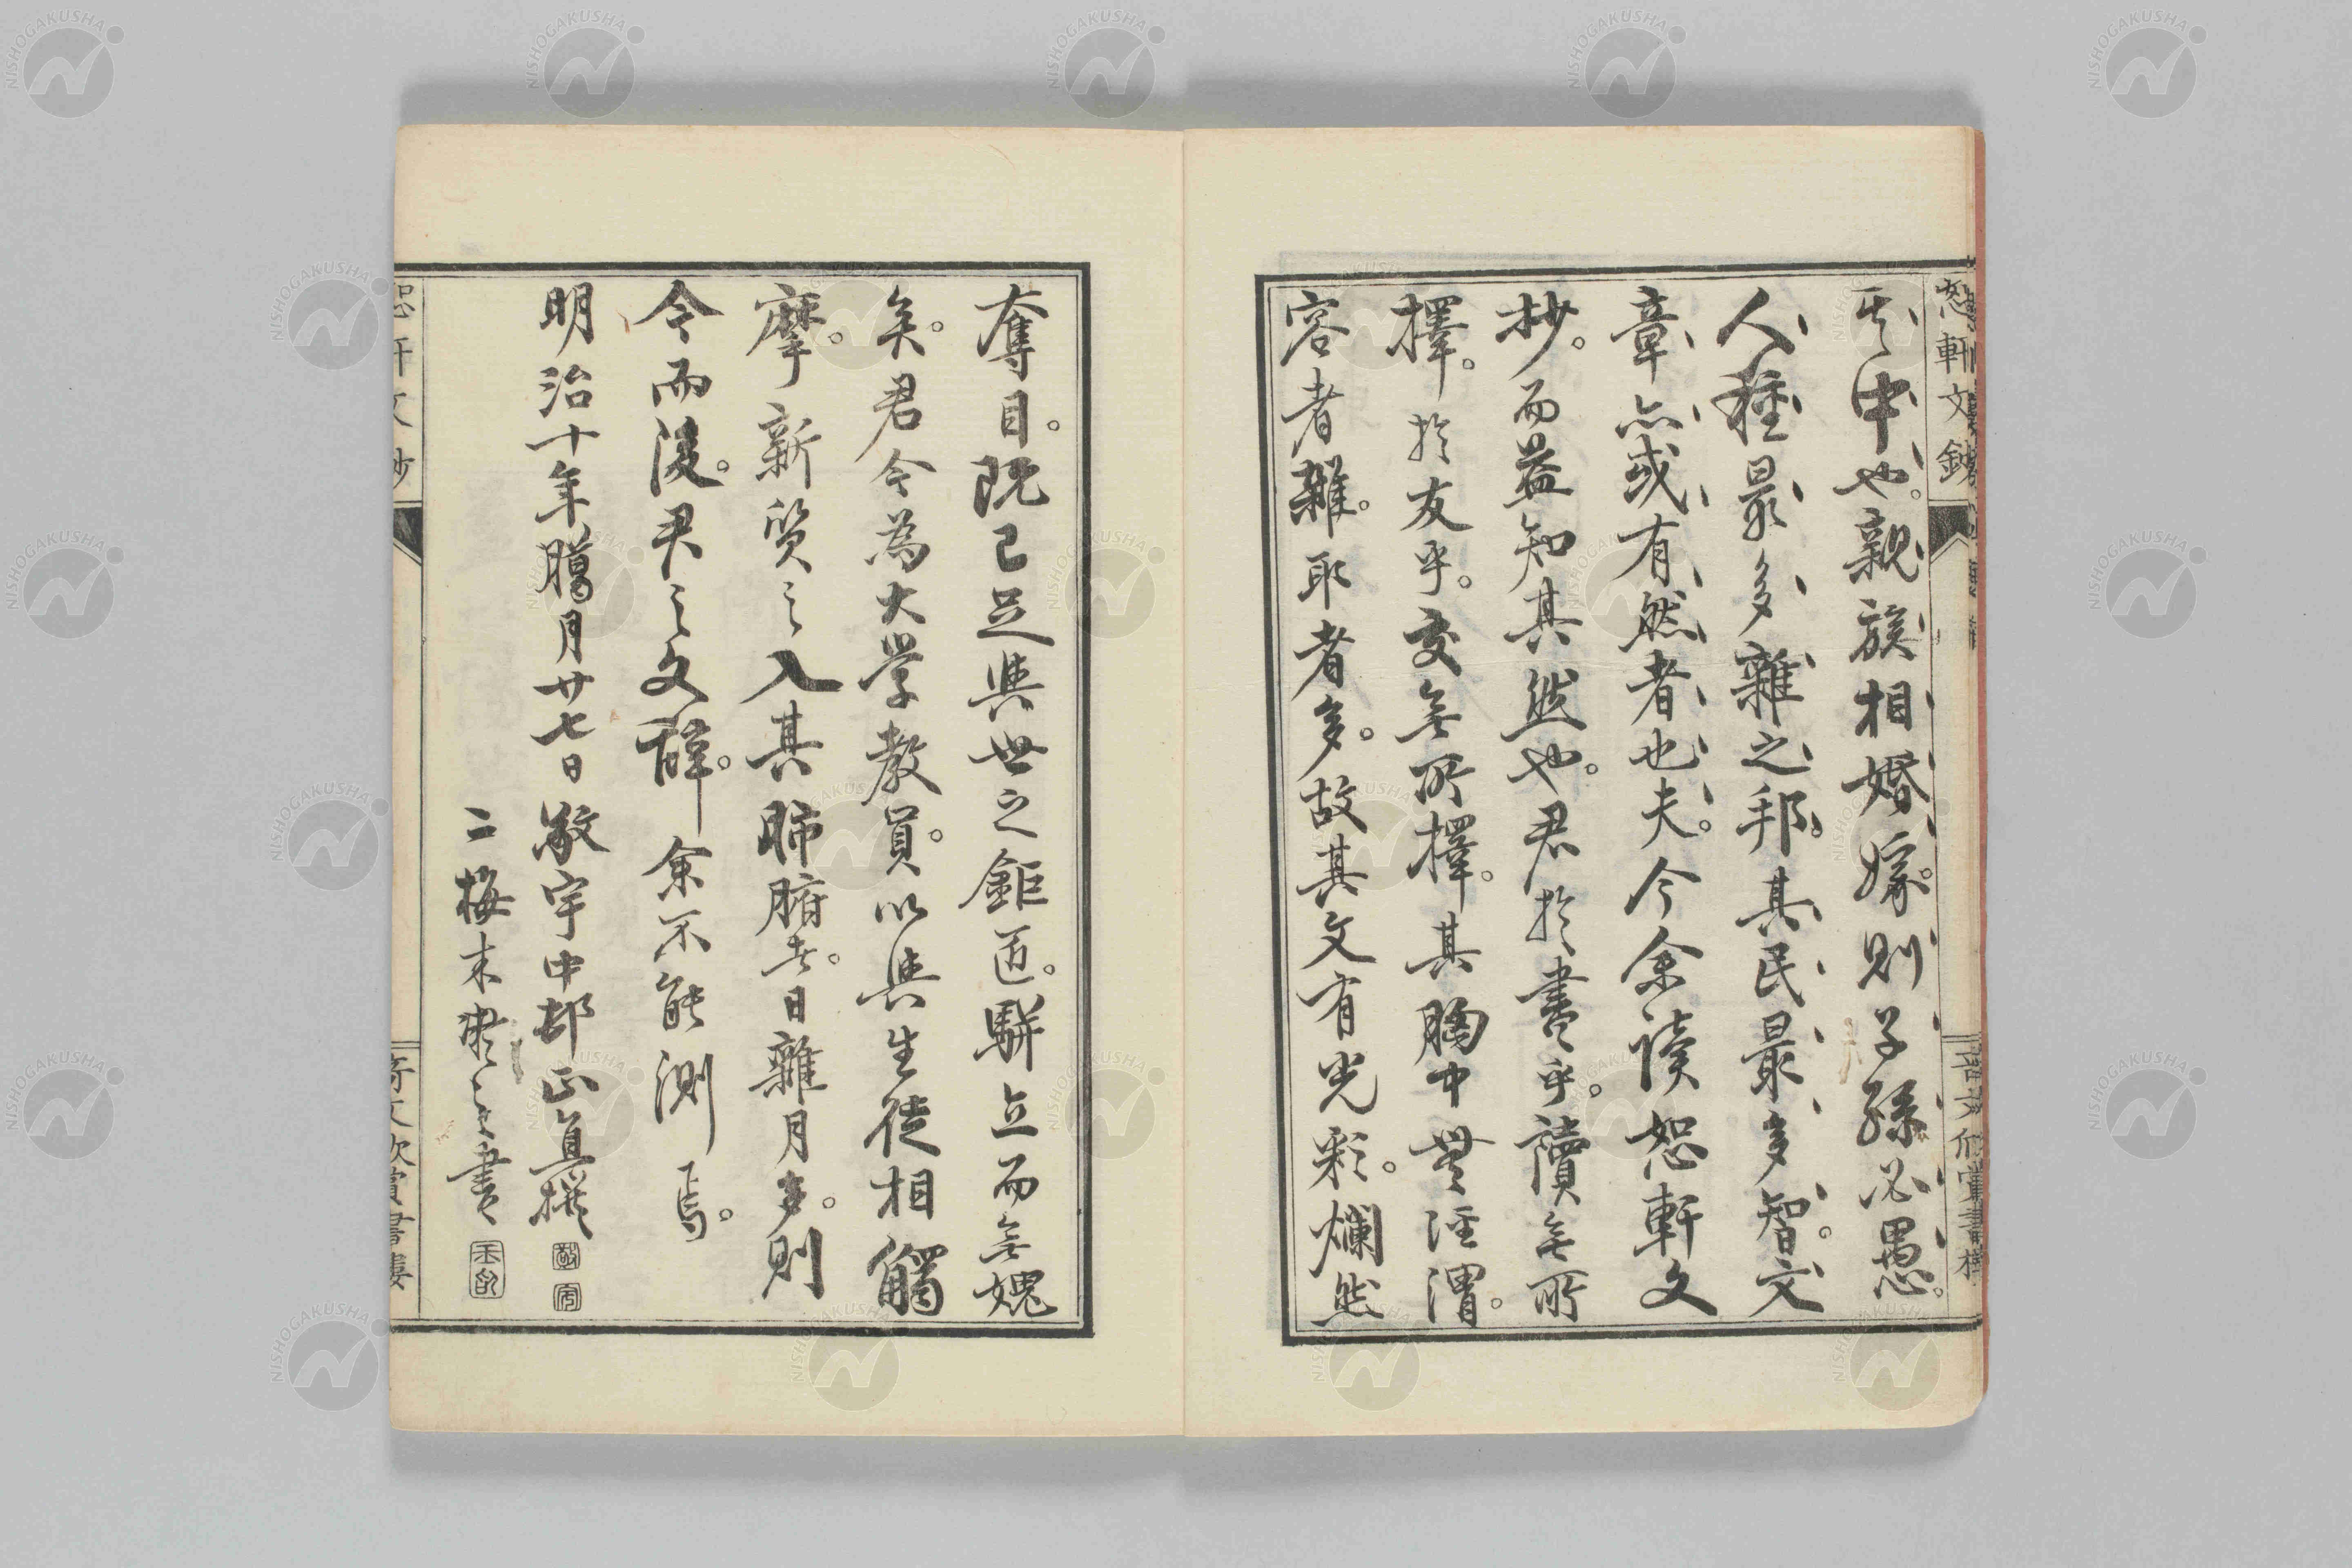 其中也。親族相婚嫁。則子孫必愚。
人種最多雜之邦。其民最多智。文
章亦或有然者也夫。今余讀恕軒文
抄。而益知其然也。君於書乎。讀無所
擇。於友乎。交無所擇。其胸中無涇渭。
容者雜。取者多。故其文有光彩。爛然
奪目。既已足與世之鉅匠。駢立而無媿
矣。君今為大学教員。以與生徒相觸
摩。新質之入其肺腑者。日雜月多。則
今而後。君之文辭。余不能測焉。
明治十年臘月廿七日 敬宇中邨正直撰
二梅末 書
恕軒文鈔
奇文欣賞書樓
NISHOGAKUSHA